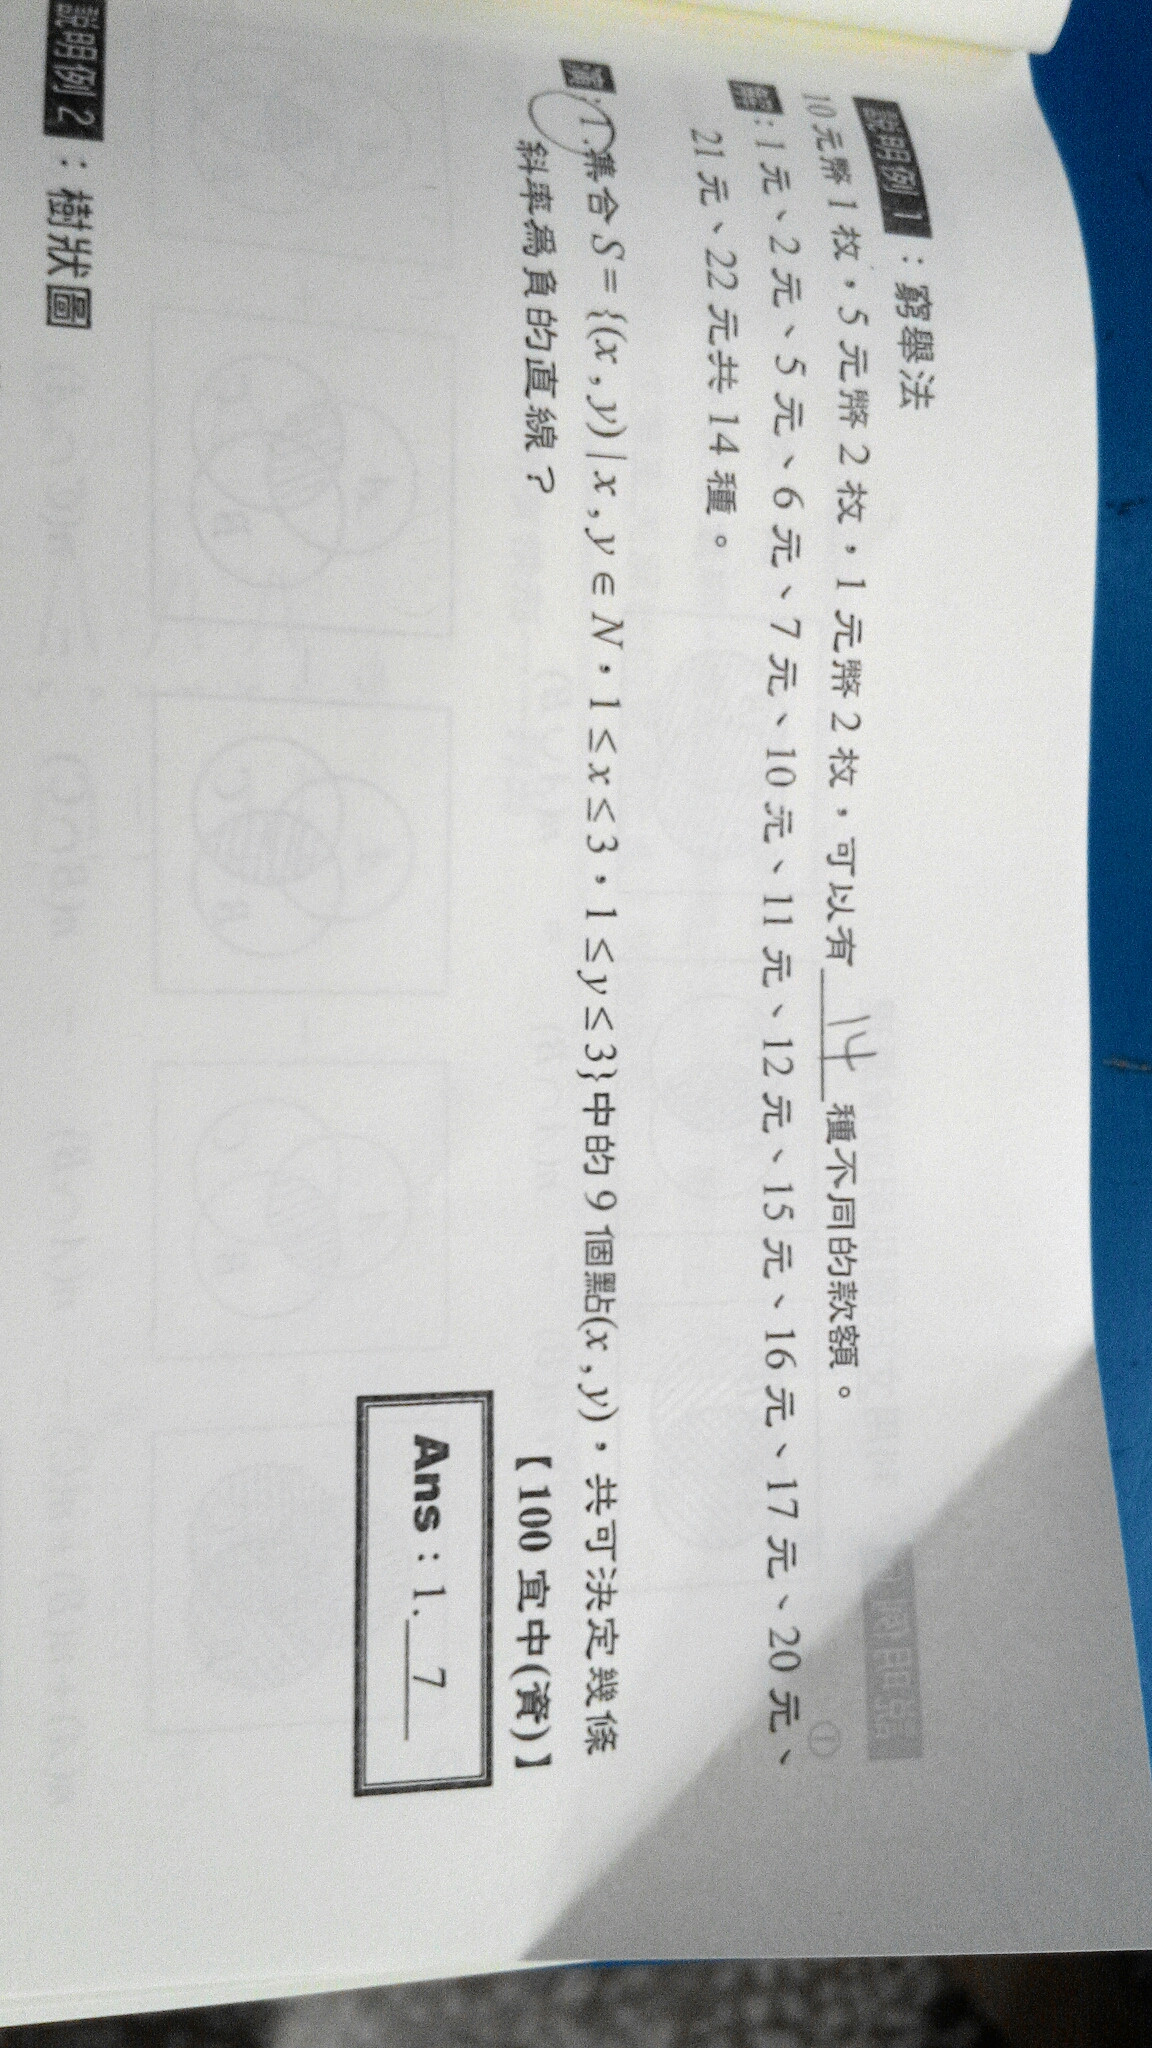 說明例 1：窮舉法
10 元幣 1 枚，5 元幣 2 枚，1 元幣 2 枚，可以有 14 種不同的款額。
解：1 元、2 元、5 元、6 元、7 元、10 元、11 元、12 元、15 元、16 元、17 元、20 元、
21 元、22 元共 14 種。
演 1. 集合 S = {(x , y) | x , y ∈ N，1 ≤ x ≤ 3，1 ≤ y ≤ 3} 中的 9 個點(x , y)，共可決定幾條
斜率為負的直線？ 【100 宜中(資)】
Ans：1. 7
說明例 2：樹狀圖